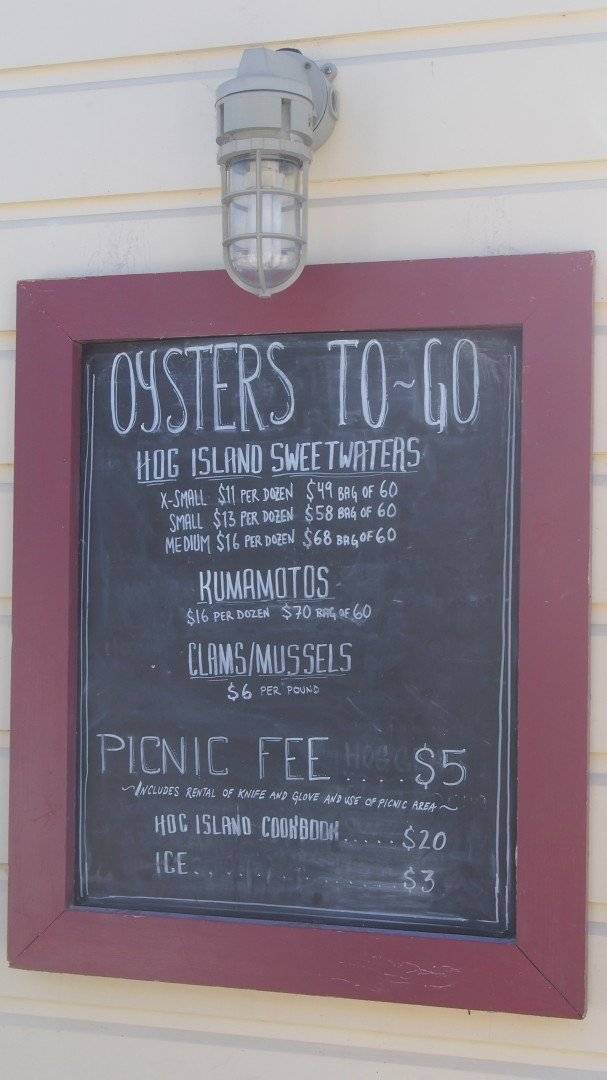 OYSTERS TO~GO
HOG ISLAND SWEETWATERS
X-SMALL $11 PER DOZEN $49 BAG OF 60
SMALL $13 PER DOZEN $58 BAG OF 60
MEDIUM $16 PER DOZEN $68 BAG OF 60
KUMAMOTOS
$16 PER DOZEN $70 BAG OF 60
CLAMS/MUSSELS
$6 PER POUND
PICNIC FEE .... $5
~INCLUDES RENTAL OF KNIFE AND GLOVE AND USE OF PICNIC AREA~
HOG ISLAND COOKBOOK ..... $20
ICE................ $3